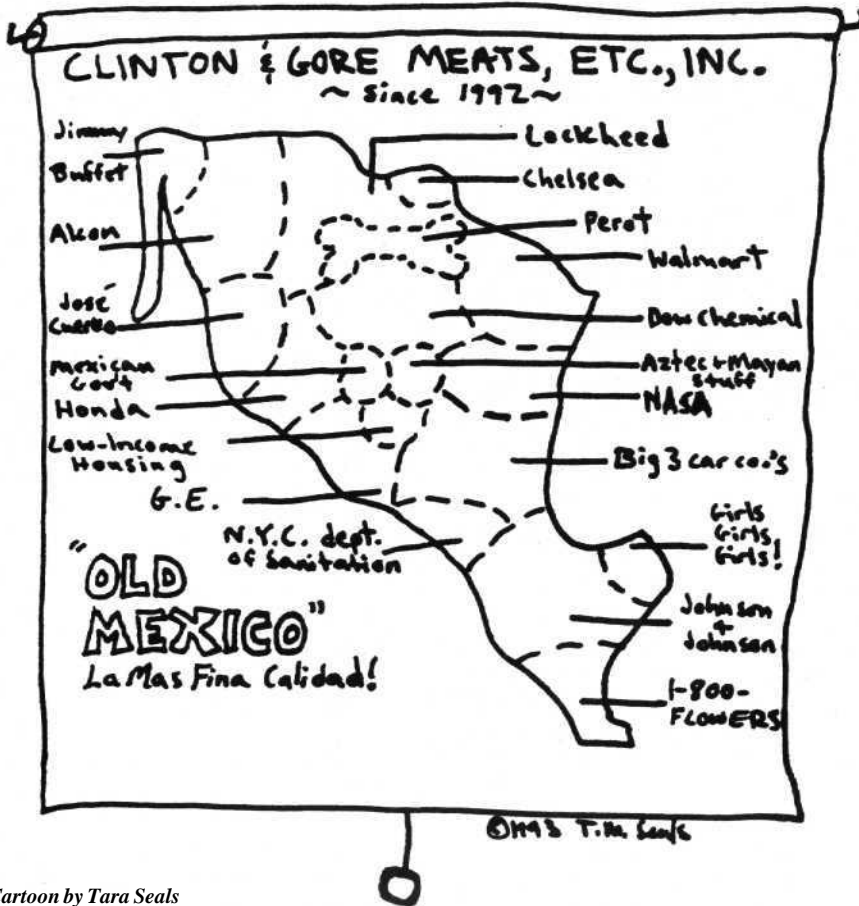 CLINTON & GORE MEATS, ETC., INC.
~ since 1992 ~
Jimmy
Buffet
Alcon
José
Cuervo
Mexican
Gov't
Honda
Low-Income
Housing
G.E.
N.Y.C. dept.
of Sanitation
Lockheed
Chelsea
Perot
Walmart
Dow Chemical
Aztec & Mayan
Stuff
NASA
Big 3 car co.'s
Girls
Girls
Girls!
Johnson
&
Johnson
1-800-
FLOWERS
"OLD
MEXICO"
La Mas Fina Calidad!
©1993 T.M. Seals
Cartoon by Tara Seals